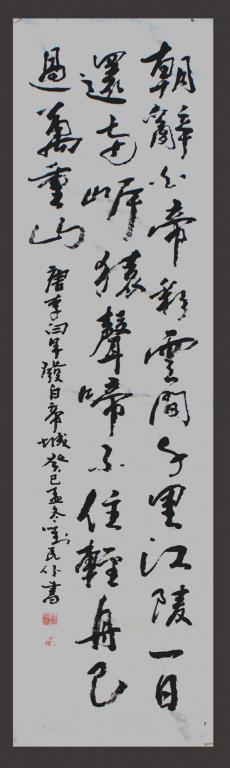 朝辭白帝彩雲間千里江陵一日
還兩岸猿聲啼不住輕舟已
過萬重山
唐李白早發白帝城癸巳孟冬劉民作書